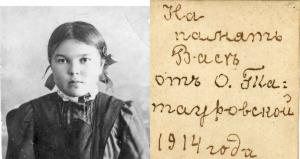 На
память
Васъ
отъ О. Та-
тауровской
1914 года